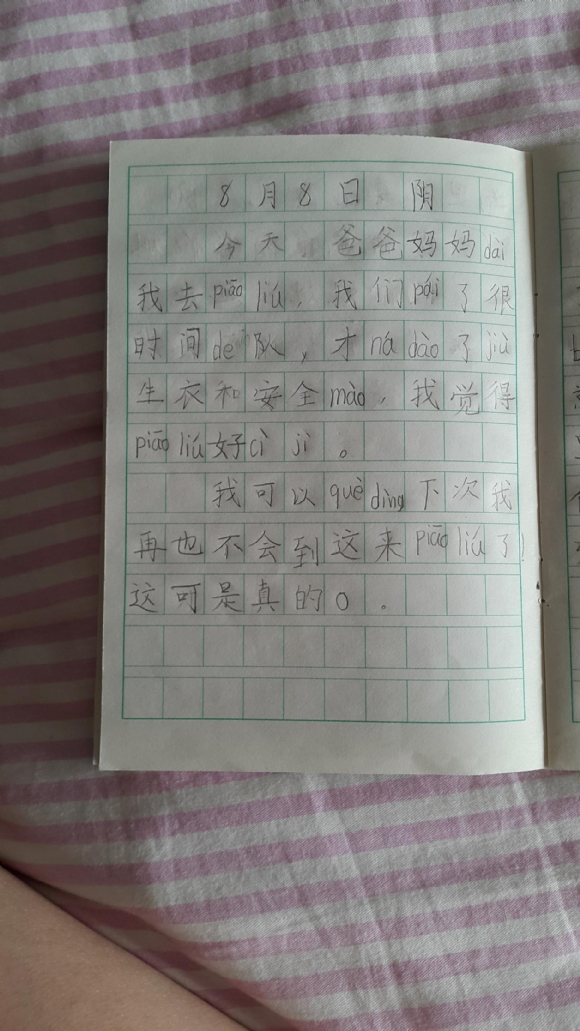 8月8日 阴
今天 爸爸妈妈dài
我去piāo liú，我们pái了很
时间de队，才ná dào了jiù
生衣和安全mào，我觉得
piāo liú好cì jī。
我可以què dìng下次我
再也不会到这来piāo liú了！
这可是真的o。